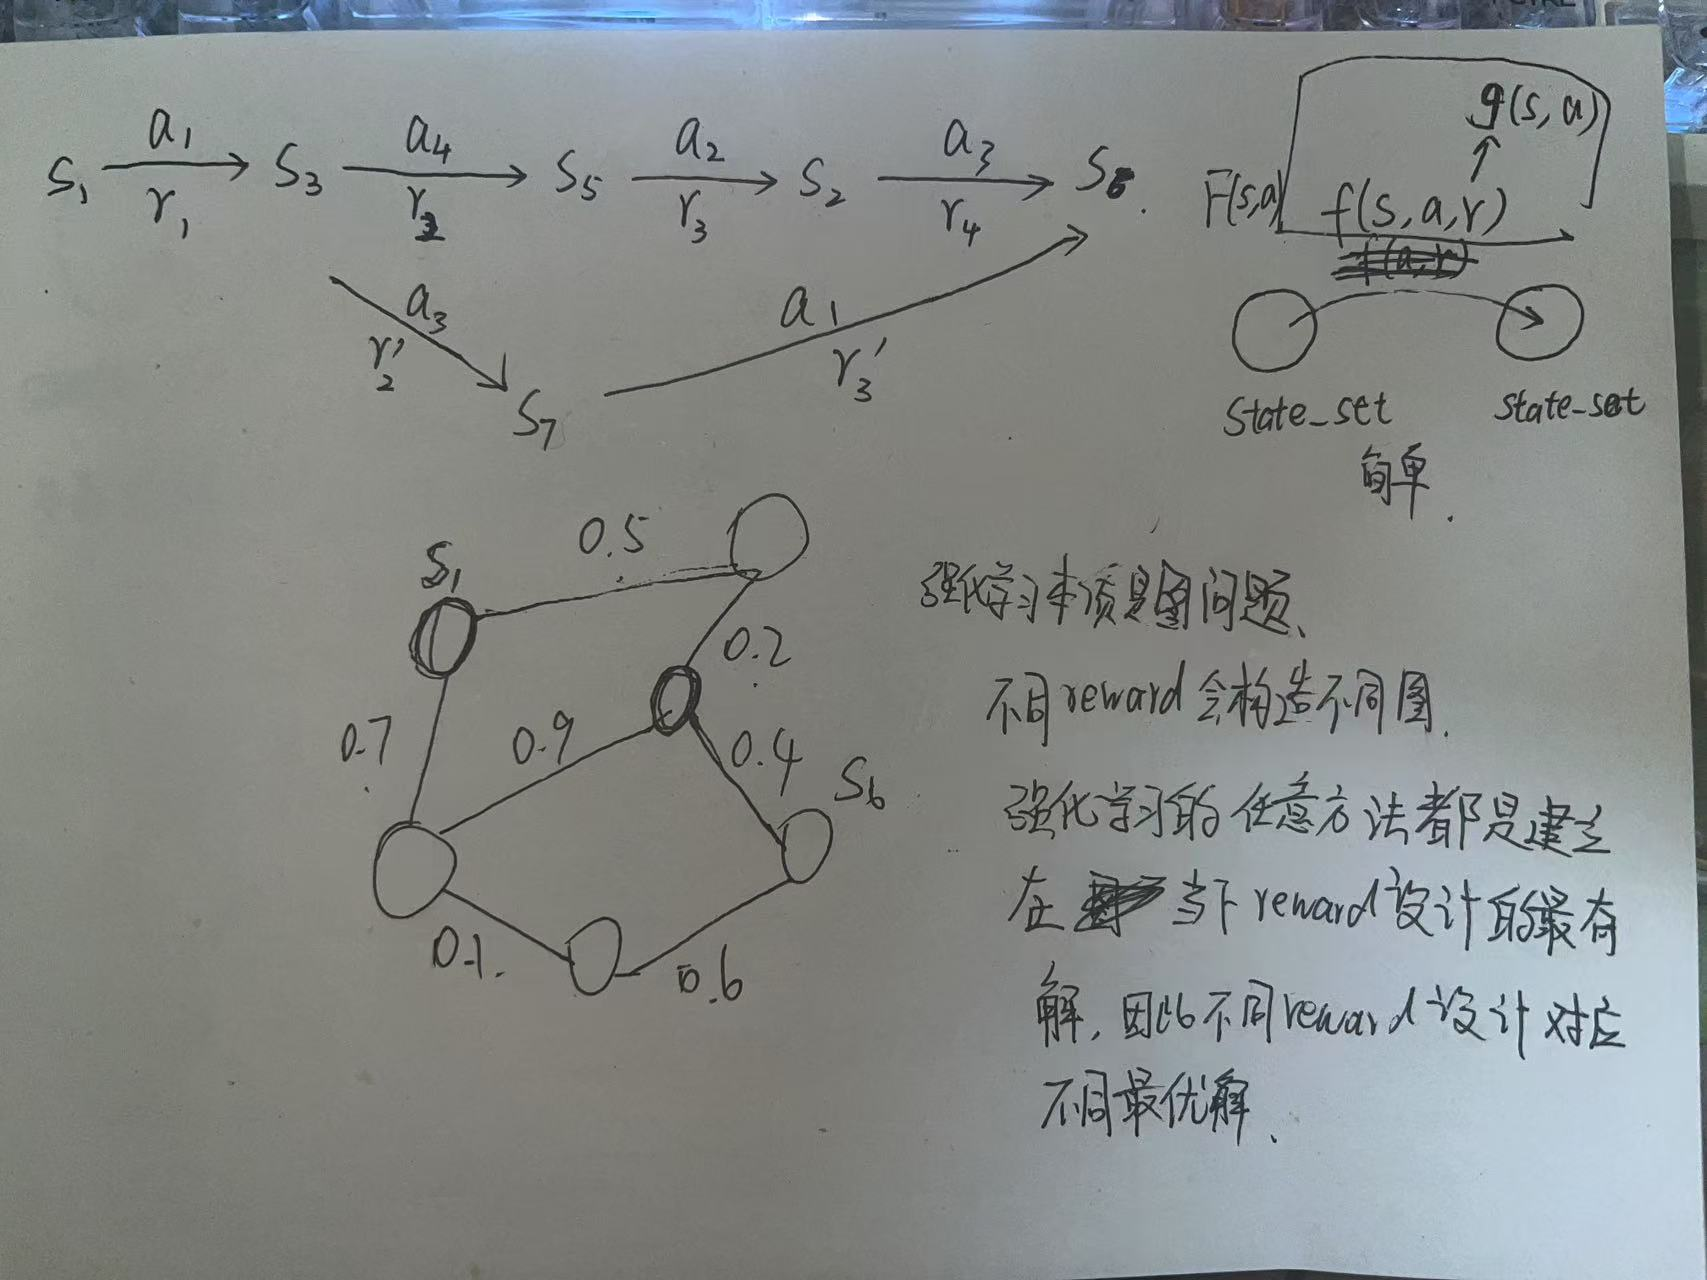 a₁ a₄ a₂ a₃
S₁ S₃ S₅ S₂ S₆.
r₁ r₂ r₃ r₄
a₃
r₂'
S₇
a₁
r₃'
g(s, a)
F(s,a) f(s, a, r)
State_set State_set
简单.
S₁
0.5
0.2
0.7
0.9
0.4
S₆
0.1.
0.6
强化学习本质是图问题、
不同reward会构造不同图.
强化学习的任意方法都是建立
在当下reward设计的最有
解, 因此不同reward设计对应
不同最优解、